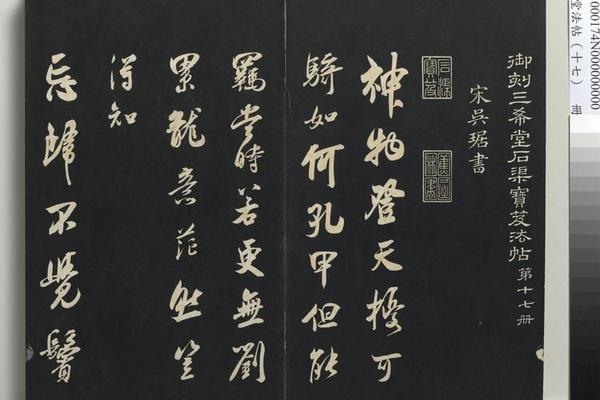 000174N000000000
堂法帖（十七） 冊
御刻三希堂石渠寶笈法帖第十七册
宋吳琚書
石渠寶笈
神物登天擾可
騎如何孔甲但能
羈當時若更無劉
累龍意茫然豈
得知
忘歸不覺鬢